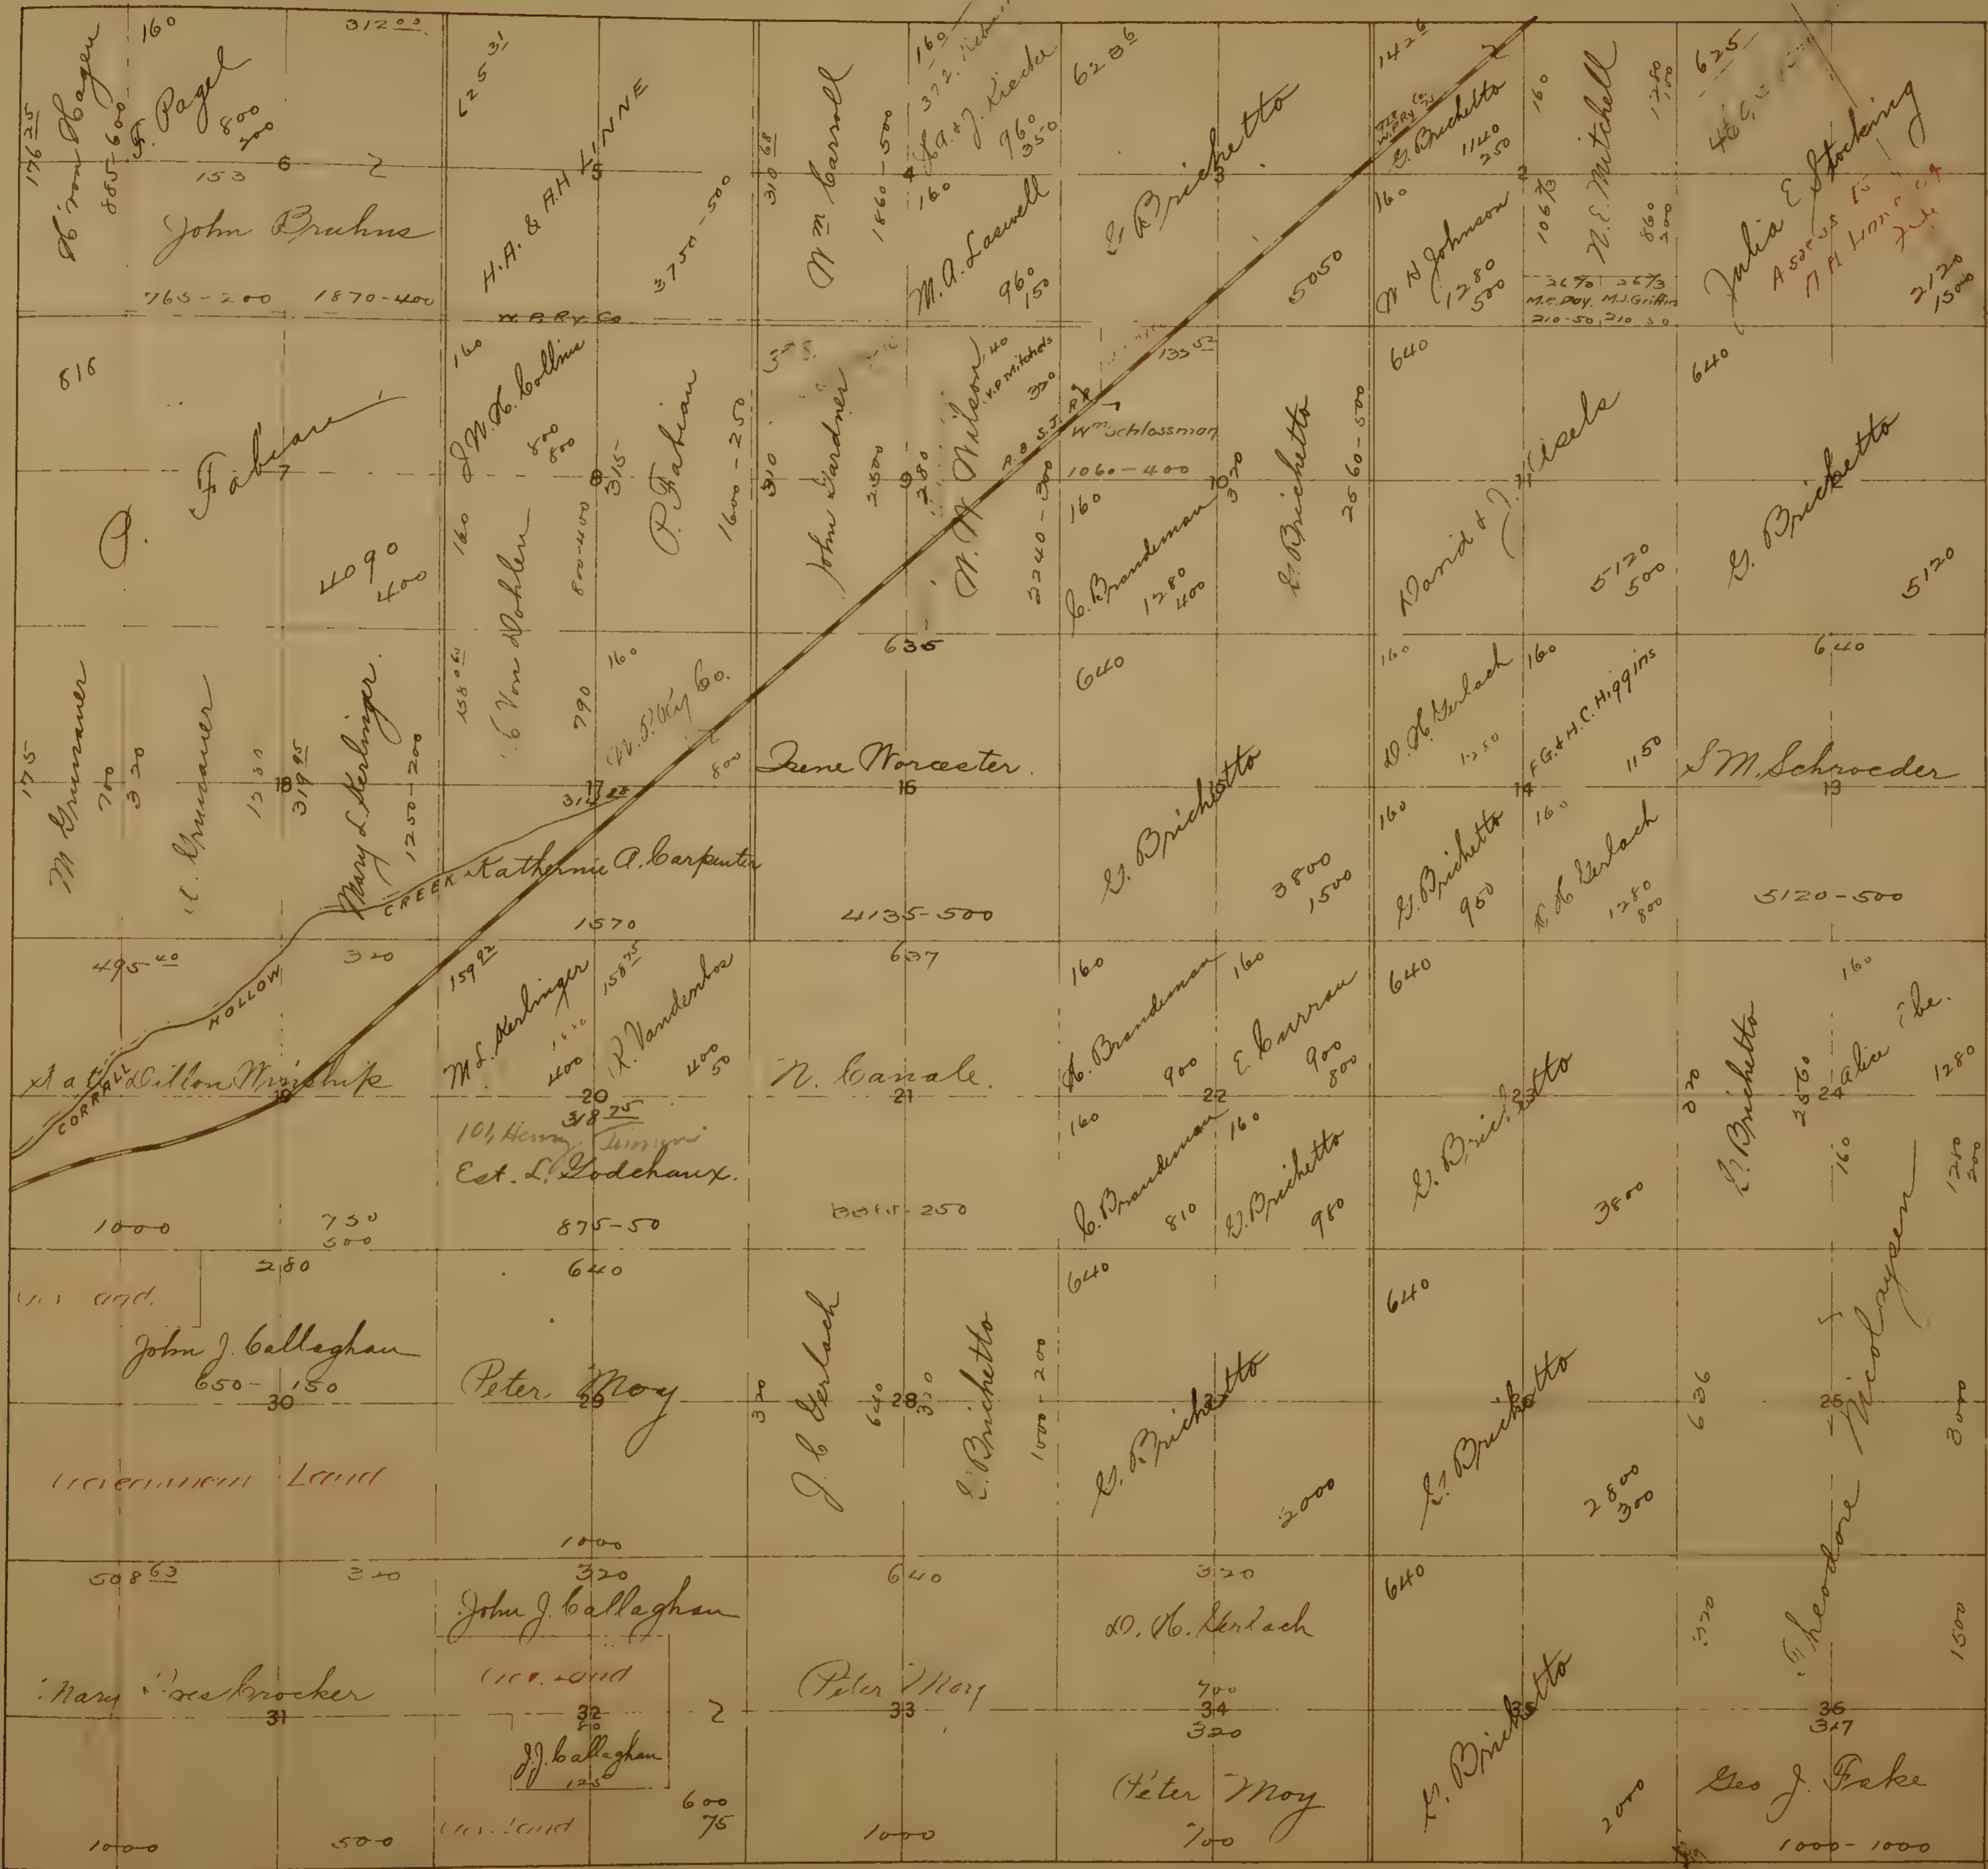 160
312 03
176 25
885-600
F. Pagel
800
200
6
153
John Bruhns
765-200 1870-400
625 31
H.A. & A.H LINNE
5
3750-500
W.P.RY. CO
310 68
Wm Carroll
1860-500
4
160
J. Kiecke
960
350
160
M.A. Laswell
960
150
628 6
G. Brichetto
3
5050
142 6
W.P.Ry Co
G. Brichetto
1140
250
2
160
W H Johnson
1280
500
160
N.E. Mitchell
1280
100
106 2/3
860
200
26 2/3 26 2/3
M.E. Day. M.J. Griffin
210-50, 210 50
625
Julia E Stocking
2120
1500
616
P. Fabian
7
4090
400
160
N.H. Collins
800
800
8
315
P. Fabian
1600-250
160
C Von Dohlen
800-400
310
John Gardner
2500
9
280
W.W. Wilson
40
V.P. Mitchels
320
2240-300
S.J. RR
133 52
Wm Schlossman
1060-400
10
160
C. Brandeman
1280
400
320
G. Brichetto
2560-500
640
David & J. Fisels
11
5120
500
640
G. Brichetto
5120
175
M Grunauer
700
320
Grunauer
1280
18
319 95
Mary L. Kerlinger.
1250-200
158 64
790
160
W.P. Ry Co.
800
17
314 88
CREEK
Katherine A. Carpenter
1570
635
Irene Worcester.
16
4135-500
640
G. Brichetto
3800
1500
160
D.H. Gerlach
1280
160
F.G. & H.C. Higgins
1150
14
160
G. Brichetto
960
160
H Gerlach
1280
800
640
S M. Schroeder
13
5120-500
495 40
320
HOLLOW
CORRALL
Dillon Winship
19
1000
750
500
159 92
M.L. Kerlinger
400
158 75
R. Vandenbos
400
50
20
318 75
Henry
Est. L. Godchaux.
875-50
637
N. Canale.
21
3345-250
160
H. Brandeman
900
160
E. Curran
900
800
22
160
C. Brandeman
810
160
G. Brichetto
980
640
G. Brichetto
23
3800
320
G. Brichetto
2560
24
160
Alice
1280
160
1280
200
280
John J. Callaghan
650-150
30
Government Land
640
Peter Moy
29
1000
320
J.C Gerlach
640
28
320
G. Brichetto
1000-200
640
G. Brichetto
2000
640
G. Brichetto
2800
300
636
25
Theodore Nicolaysen
3000
508 63
320
Mary Ives Crocker
31
1000
500
320
John J. Callaghan
32
80
J.J. Callaghan
125
600
75
640
Peter Moy
33
1000
320
D. H. Gerlach
700
34
320
Peter Moy
700
640
G. Brichetto
35
2000
320
1500
36
317
Geo J. Fake
1000-1000